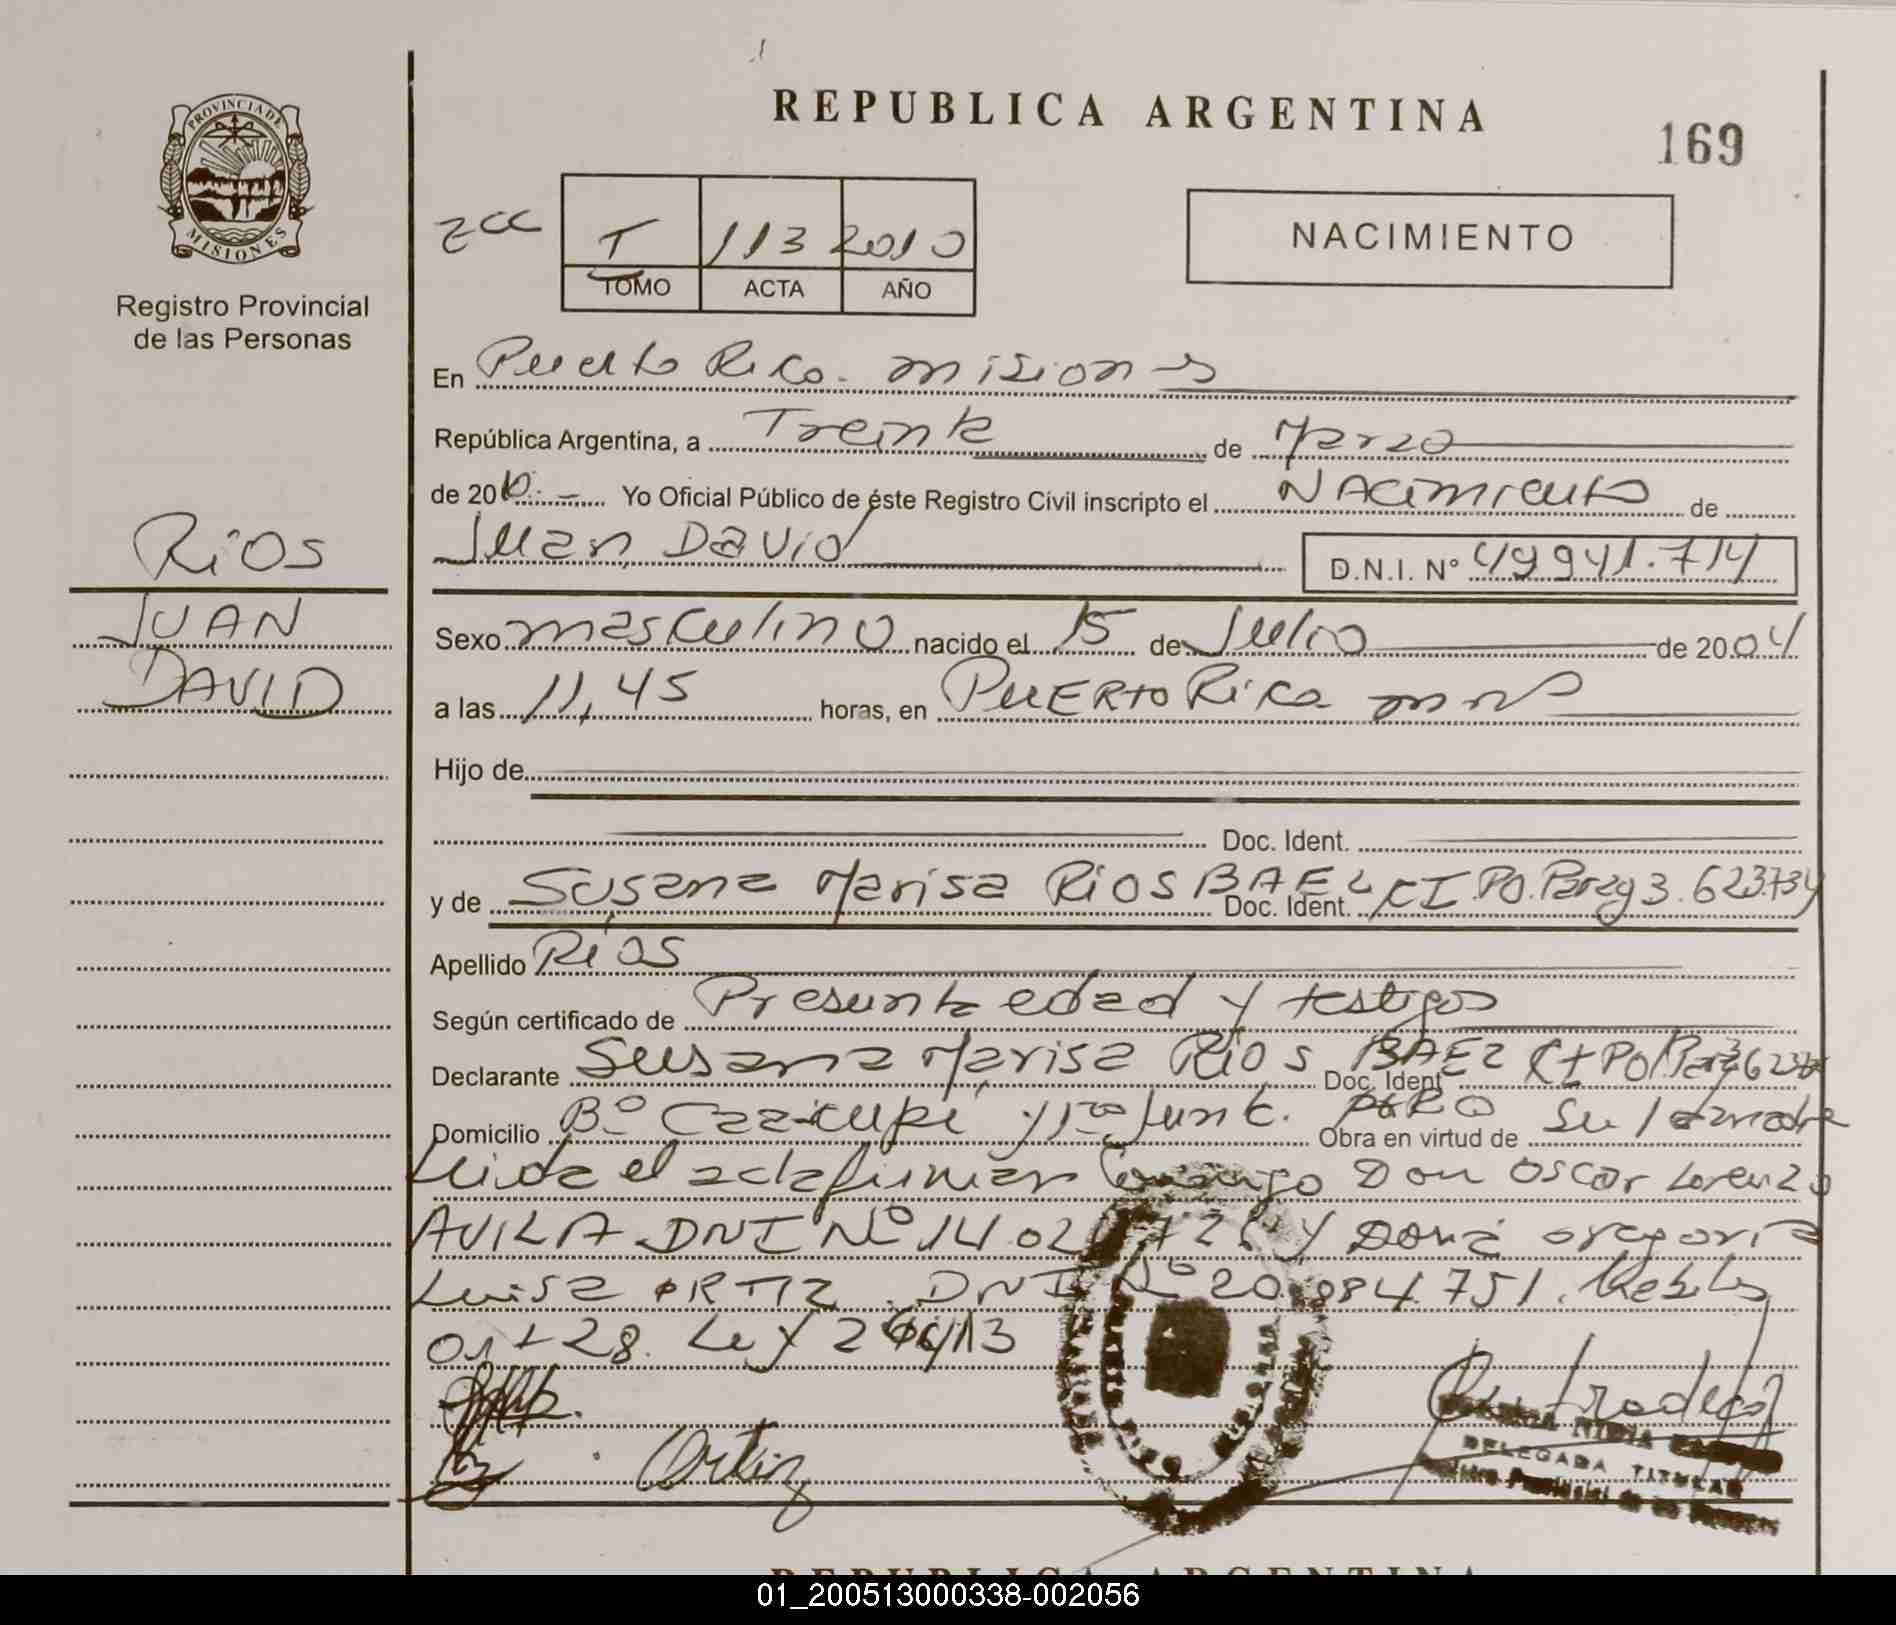 REPUBLICA ARGENTINA
169
PROVINCIA DE
MISIONES
Registro Provincial
de las Personas
T 113 2010
TOMO ACTA AÑO
NACIMIENTO
En Puerto Rico. misiones
República Argentina, a Treinta de Marzo
de 2010 Yo Oficial Público de éste Registro Civil inscripto el NAcimiento de
Rios
Juan David D.N.I. Nº 49941.714
JUAN
Sexo masculino nacido el 15 de Julio de 2004
DAVID
a las 11,45 horas, en PUERTO Rico
Hijo de
Doc. Ident.
y de Susana Marisa Rios BAEZ Doc. Ident. CI.PO.Parag 3.623.734
Apellido Rios
Según certificado de Presunta edad y testigos
Declarante Susana Marisa Rios BAEZ Doc. Ident CI PO
Domicilio Bº Caacupe Obra en virtud de Su
leida el acta firman conmigo Don Oscar Lorenzo
AVILA DNI Nº 14 02 y Doña Gregoria
Luisa ORTIZ. DNI Nº 20.084.751.
28. Ley
Ortiz
DELEGADA TITULAR
REPUBLICA ARGENTINA
01_200513000338-002056